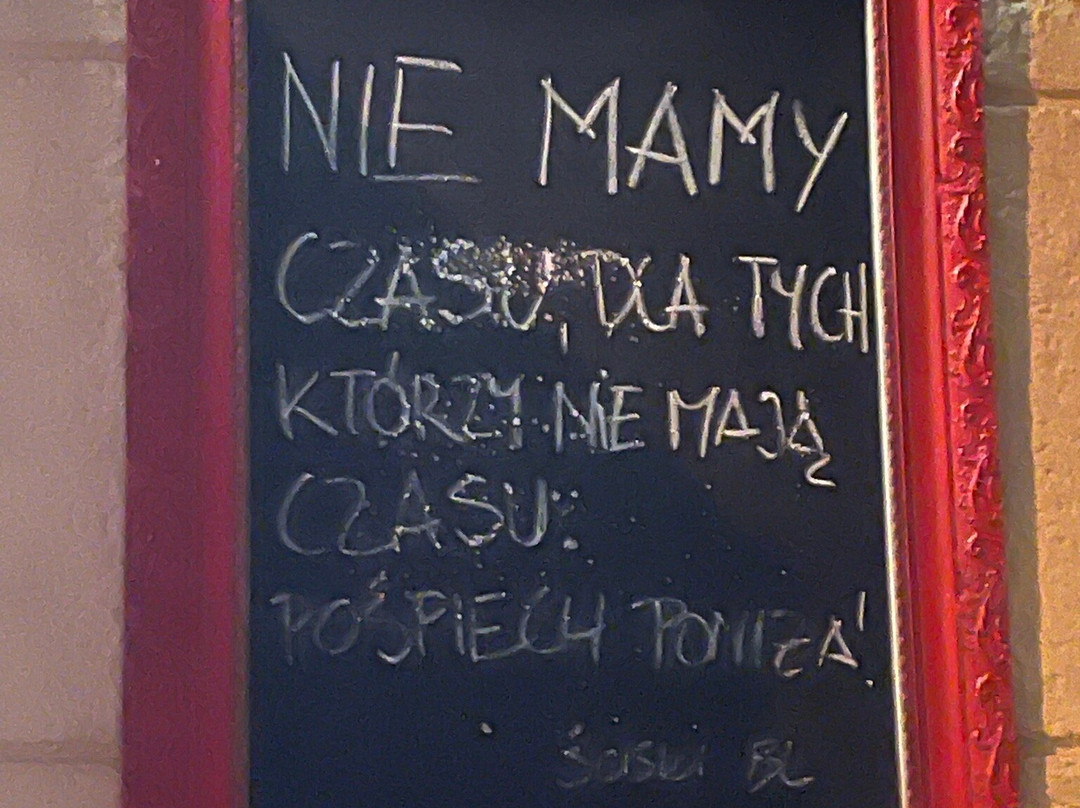 NIE MAMY
CZASU, DLA TYCH
KTÓRZY NIE MAJĄ
CZASU.
POŚPIECH PONIŻA!